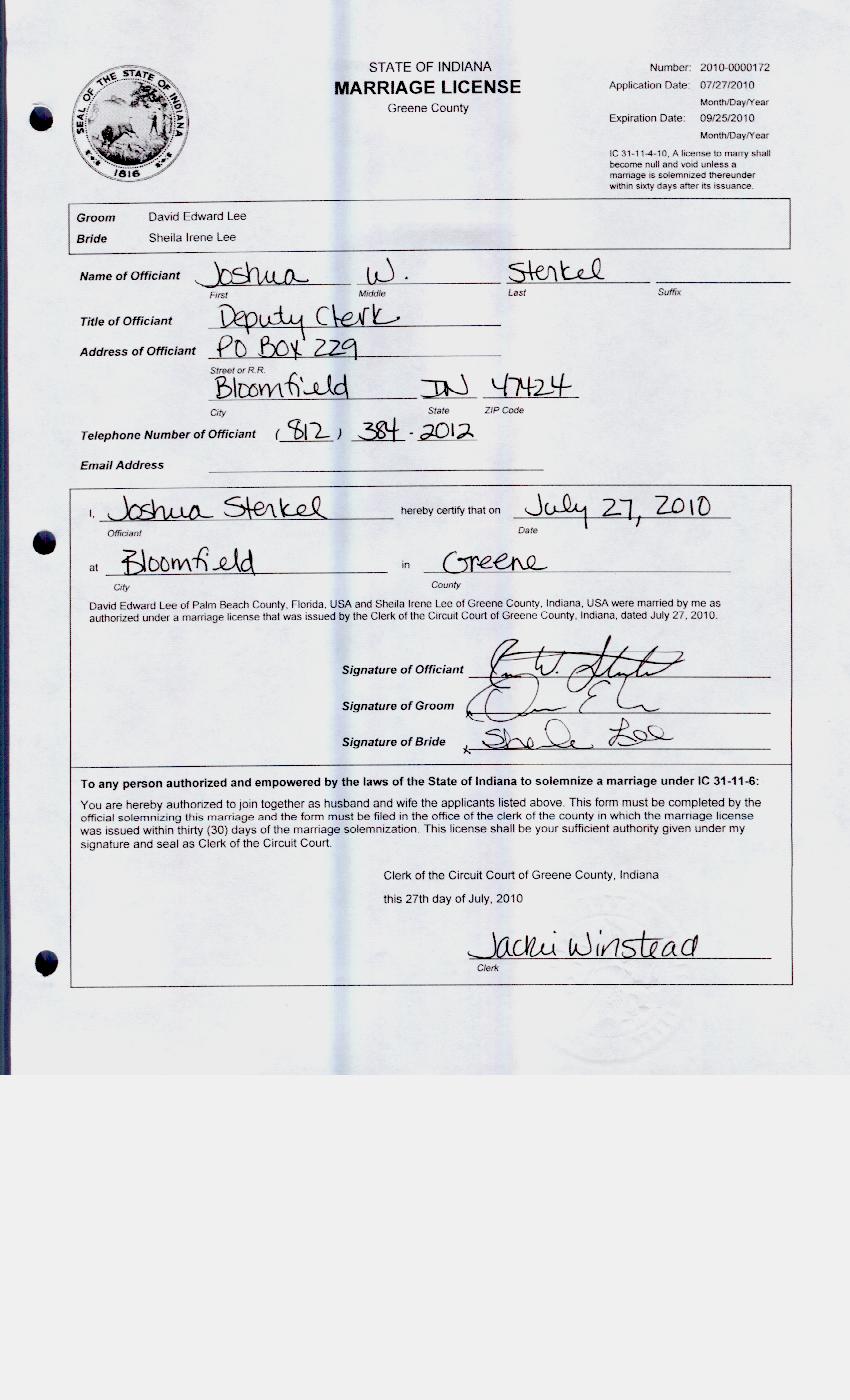 SEAL OF THE STATE OF INDIANA
1816
STATE OF INDIANA
MARRIAGE LICENSE
Greene County
Number: 2010-0000172
Application Date: 07/27/2010
Month/Day/Year
Expiration Date: 09/25/2010
Month/Day/Year
IC 31-11-4-10, A license to marry shall
become null and void unless a
marriage is solemnized thereunder
within sixty days after its issuance.
Groom David Edward Lee
Bride Sheila Irene Lee
Name of Officiant Joshua W. Sterkel
First Middle Last Suffix
Title of Officiant Deputy Clerk
Address of Officiant PO Box 229
Street or R.R.
Bloomfield IN 47424
City State ZIP Code
Telephone Number of Officiant (812) 384-2012
Email Address
I, Joshua Sterkel hereby certify that on July 27, 2010
Officiant Date
at Bloomfield in Greene
City County
David Edward Lee of Palm Beach County, Florida, USA and Sheila Irene Lee of Greene County, Indiana, USA were married by me as
authorized under a marriage license that was issued by the Clerk of the Circuit Court of Greene County, Indiana, dated July 27, 2010.
Signature of Officiant
Signature of Groom
Signature of Bride Sheila Lee
To any person authorized and empowered by the laws of the State of Indiana to solemnize a marriage under IC 31-11-6:
You are hereby authorized to join together as husband and wife the applicants listed above. This form must be completed by the
official solemnizing this marriage and the form must be filed in the office of the clerk of the county in which the marriage license
was issued within thirty (30) days of the marriage solemnization. This license shall be your sufficient authority given under my
signature and seal as Clerk of the Circuit Court.
Clerk of the Circuit Court of Greene County, Indiana
this 27th day of July, 2010
Jacki Winstead
Clerk